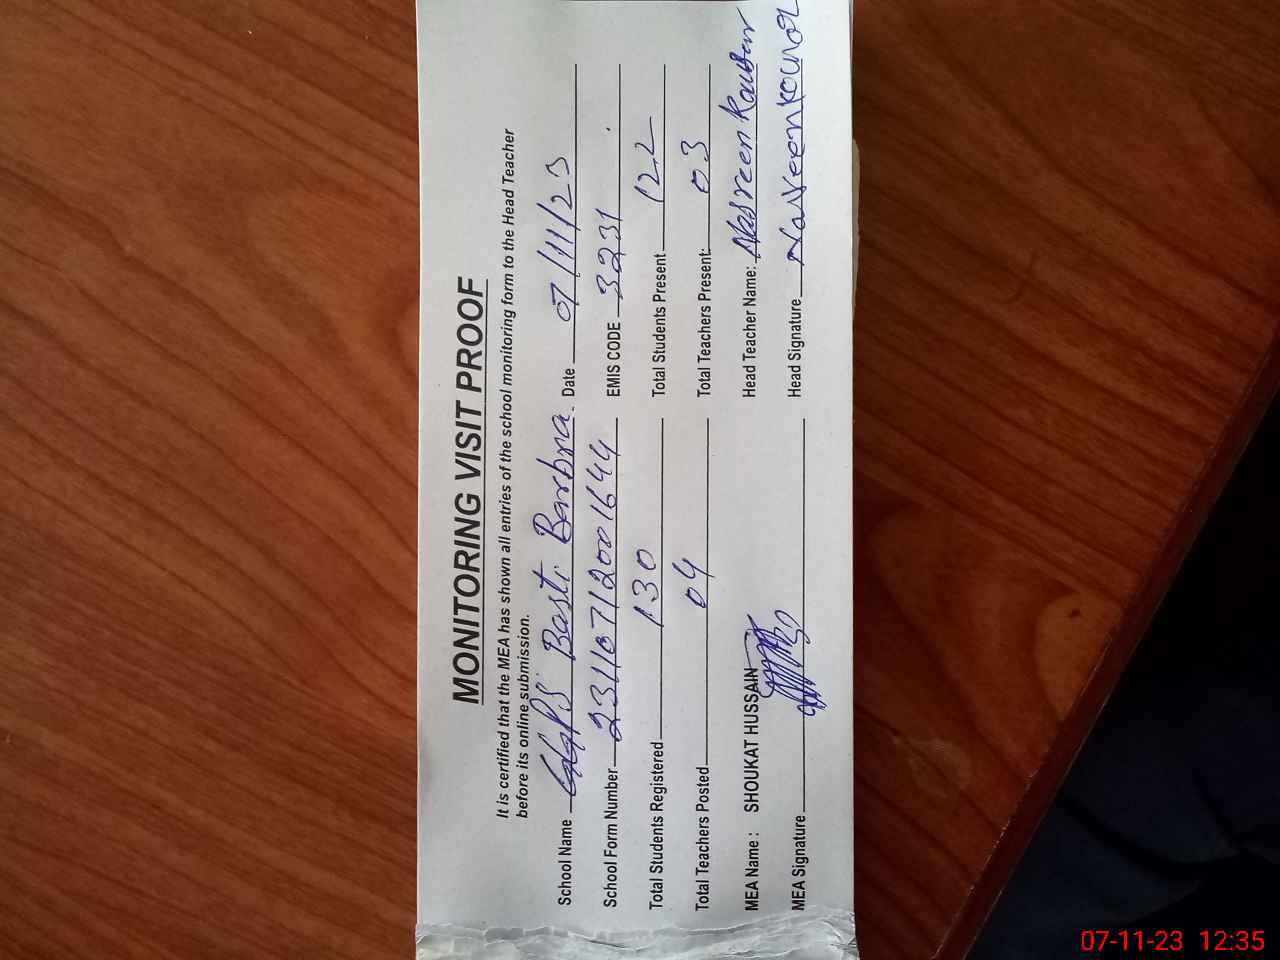 MONITORING VISIT PROOF
It is certified that the MEA has shown all entries of the school monitoring form to the Head Teacher
before its online submission.
School Name GGPS Basti Barbra. Date 07/11/23
School Form Number 231107/2001644 EMIS CODE 3231
Total Students Registered 130 Total Students Present 122
Total Teachers Posted 04 Total Teachers Present: 03
MEA Name : SHOUKAT HUSSAIN Head Teacher Name: Nasreen Kausar
MEA Signature Head Signature
07-11-23 12:35